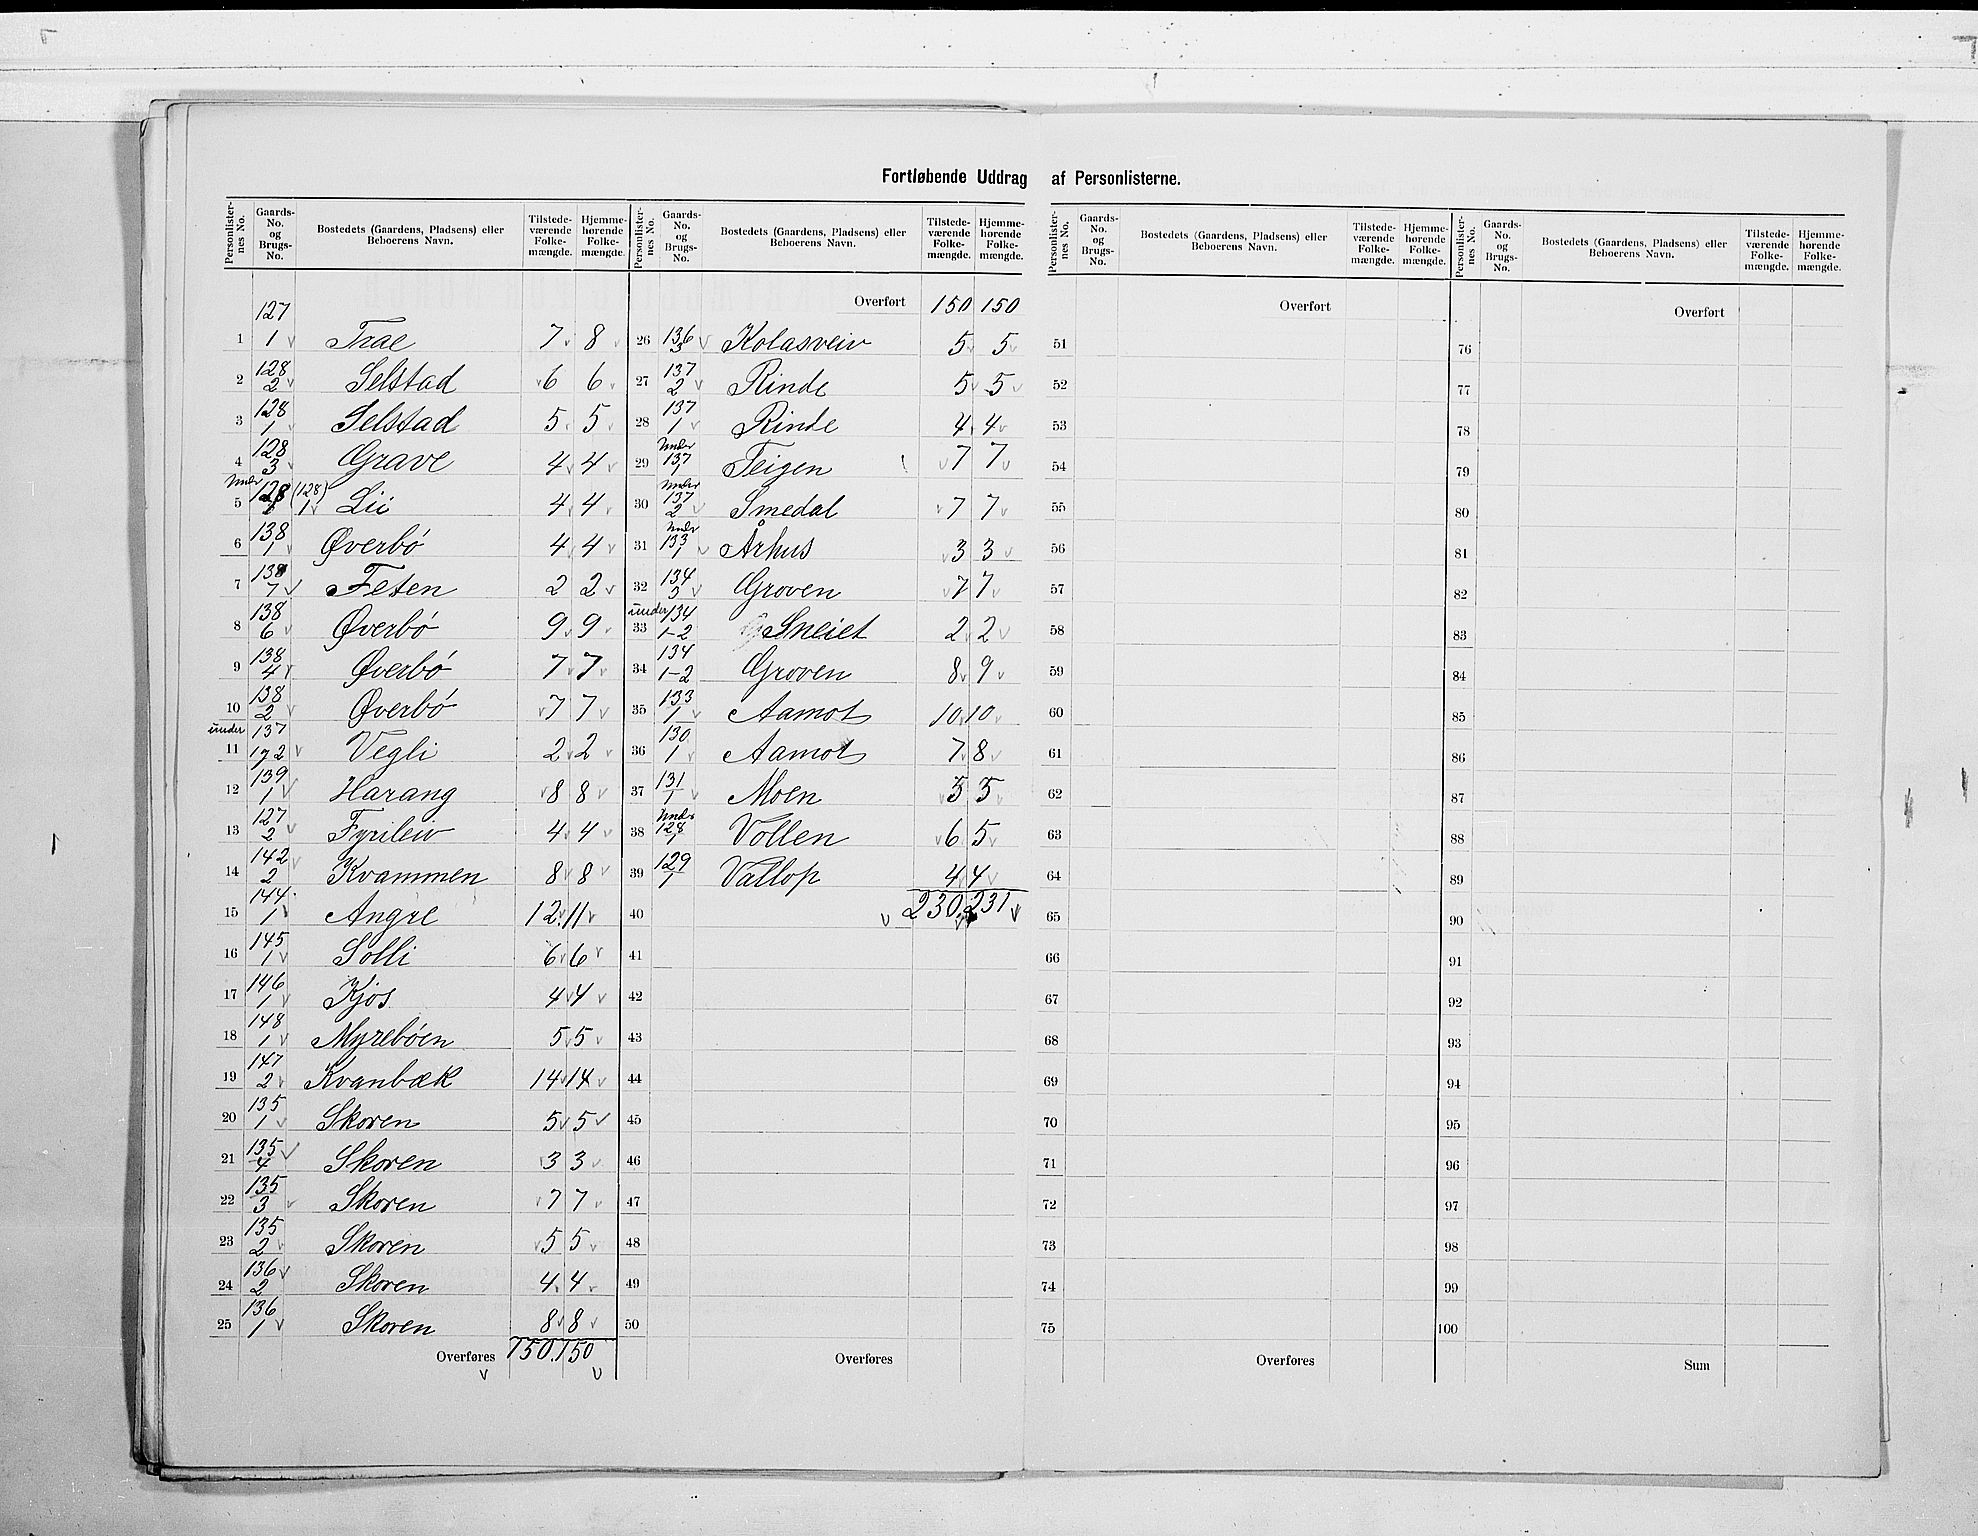 Fortløbende Uddrag af Personlisterne.
Personlisternes No. Gaards-No. og Brugs-No. Bostedets (Gaardens, Pladsens) eller Beboerens Navn. Tilstedeværende Folkemængde. Hjemmehørende Folkemængde.
1 127/1 Trae 7 8
2 128/2 Selstad 6 6
3 128/1 Selstad 5 5
4 128/3 Grave 4 4
5 Under 128/1 (128/1) Lii 4 4
6 138/1 Øverbö 4 4
7 138/7 Feten 2 2
8 138/6 Øverbö 9 9
9 138/4 Øverbö 7 7
10 138/2 Øverbö 7 7
11 under 137/1,2 Vegli 2 2
12 139/1 Harang 8 8
13 127/2 Fyrileiv 4 4
14 142/2 Kvammen 8 8
15 144/1 Angre 12 11
16 145/1 Solli 6 6
17 146/1 Kjos 4 4
18 148/1 Myreböen 5 5
19 147/2 Kvanbæk 14 14
20 135/1 Skoren 5 5
21 135/4 Skoren 3 3
22 135/3 Skoren 7 7
23 135/2 Skoren 5 5
24 136/2 Skoren 4 4
25 136/1 Skoren 8 8
Overføres 150 150
Personlisternes No. Gaards-No. og Brugs-No. Bostedets (Gaardens, Pladsens) eller Beboerens Navn. Tilstedeværende Folkemængde. Hjemmehørende Folkemængde.
Overført 150 150
26 136/3 Kolasveiv 5 5
27 137/2 Rinde 5 5
28 137/1 Rinde 4 4
29 Under 137/1 Teigen 7 7
30 Under 137/2 Smedal 7 7
31 Under 133/1 Århus 3 3
32 134/3 Groven 7 7
33 under 134/1-2 Sneiet 2 2
34 134/1-2 Groven 8 9
35 133/1 Aamot 10 10
36 130/1 Aamot 7 8
37 131/1 Moen 5 5
38 Under 128/1 Vollen 6 5
39 129/1 Vallop 4 4
40 230 231
41
42
43
44
45
46
47
48
49
50
Overføres
Personlisternes No. Gaards-No. og Brugs-No. Bostedets (Gaardens, Pladsens) eller Beboerens Navn. Tilstedeværende Folkemængde. Hjemmehørende Folkemængde.
Overført
51
52
53
54
55
56
57
58
59
60
61
62
63
64
65
66
67
68
69
70
71
72
73
74
75
Overføres
Personlisternes No. Gaards-No. og Brugs-No. Bostedets (Gaardens, Pladsens) eller Beboerens Navn. Tilstedeværende Folkemængde. Hjemmehørende Folkemængde.
Overført
76
77
78
79
80
81
82
83
84
85
86
87
88
89
90
91
92
93
94
95
96
97
98
99
100
Sum